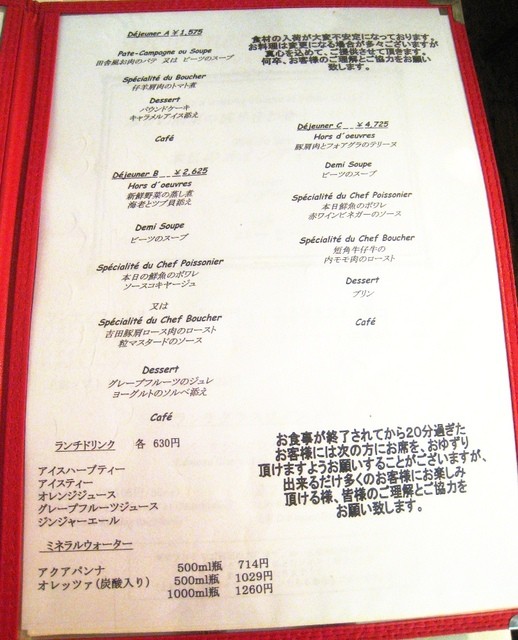 Déjeuner A ￥1,575
Pate-Campagne ou Soupe
田舎風お肉のパテ 又は ビーツのスープ
Spécialité du Boucher
仔羊肩肉のトマト煮
Dessert
パウンドケーキ
キャラメルアイス添え
Café
Déjeuner B ￥2,625
Hors d'oeuvres
新鮮野菜の蒸し煮
海老とツブ貝添え
Demi Soupe
ビーツのスープ
Spécialité du Chef Poissonier
本日の鮮魚のポワレ
ソースコキヤージュ
又は
Spécialité du Chef Boucher
吉田豚肩ロース肉のロースト
粒マスタードのソース
Dessert
グレープフルーツのジュレ
ヨーグルトのソルベ添え
Café
ランチドリンク 各 630円
アイスハーブティー
アイスティー
オレンジジュース
グレープフルーツジュース
ジンジャーエール
ミネラルウォーター
アクアパンナ 500ml瓶 714円
オレッツァ(炭酸入り) 500ml瓶 1029円
1000ml瓶 1260円
食材の入荷が大変不安定になっております。
お料理は変更になる場合が多々ございますが
真心を込めて、ご提供させて頂きます。
何卒、お客様のご理解とご協力をお願い
致します。
Déjeuner C ￥4,725
Hors d'oeuvres
豚肩肉とフォアグラのテリーヌ
Demi Soupe
ビーツのスープ
Spécialité du Chef Poissonier
本日鮮魚のポワレ
赤ワインビネガーのソース
Spécialité du Chef Boucher
短角牛仔牛の
内モモ肉のロースト
Dessert
プリン
Café
お食事が終了されてから20分過ぎた
お客様には次の方にお席を、おゆずり
頂けますようお願いすることがございますが、
出来るだけ多くのお客様にお楽しみ
頂ける様、皆様のご理解とご協力を
お願い致します。